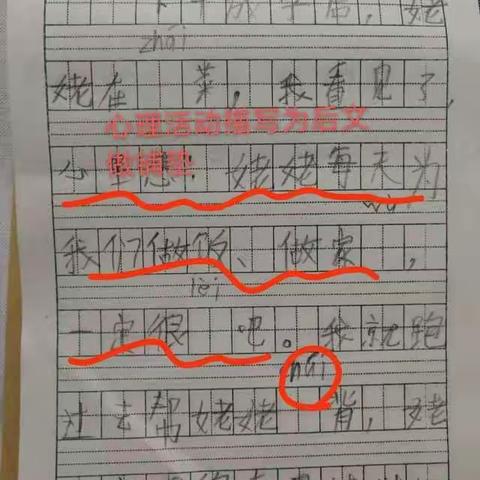 学后，姥
zhāi
姥在 菜，我看见了，
心理活动描写为后文
做铺垫
心里想：姥姥每天为
wù
我们做饭、做家 ，
lèi
一定很 吧。我就跑
nāi
过去帮姥姥 背，姥